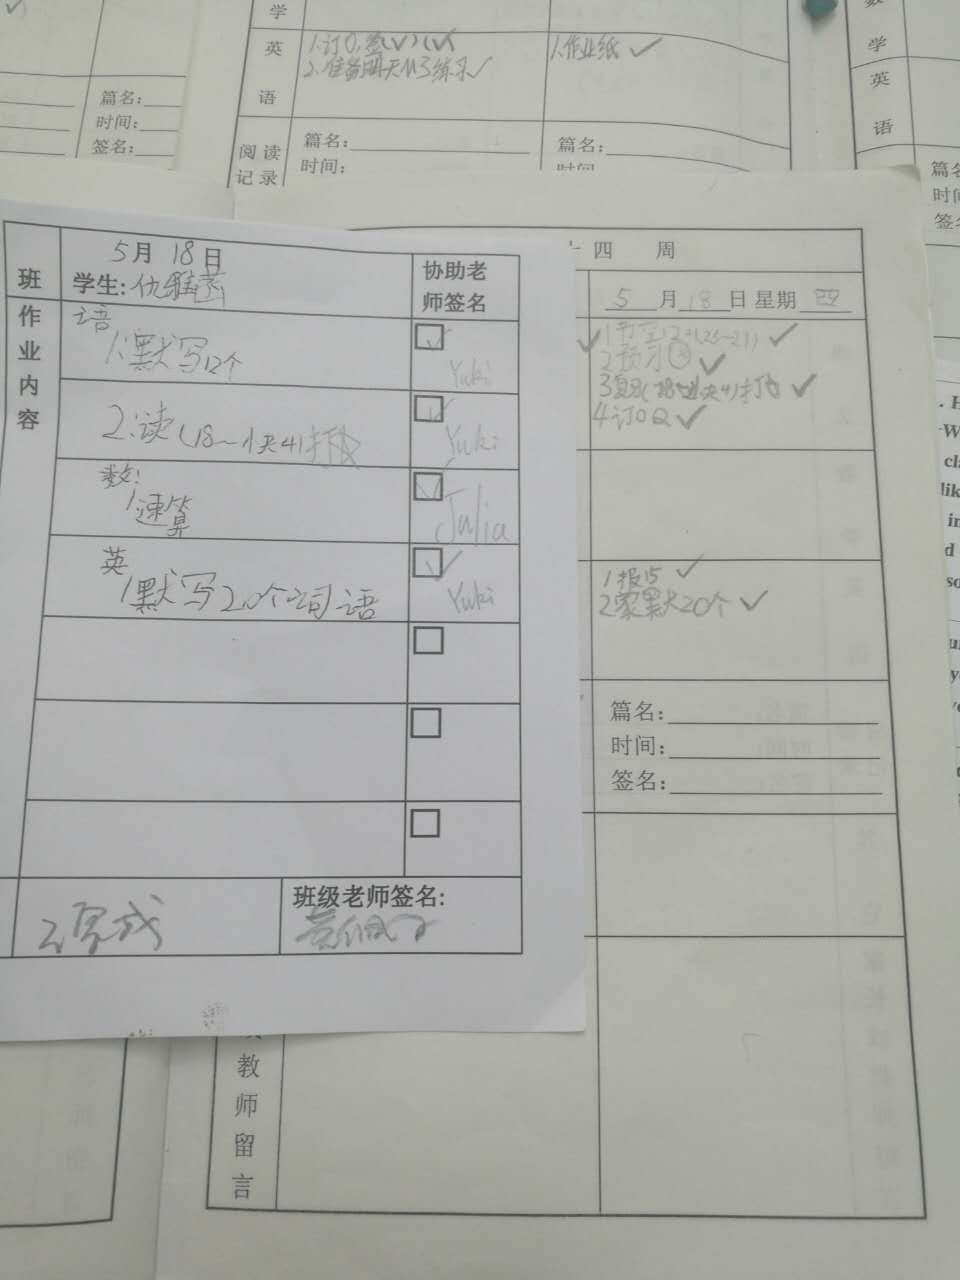 学
英
语
1.订Q,签(✓)(✓)
2.准备明天M3练习✓
1.作业纸✓
阅读
记录
篇名:
时间:
篇名:
时间:
篇名:
时间:
签名:
学
英
语
篇名
时间
签名
十四 周
5月18日 星期四
2预习③✓
4订Q✓
1报15✓
2家默20个✓
篇名:
时间:
签名:
教
师
留
言
班
5月18日
学生:
协助老
师签名
作
业
内
容
语
1.默写12个
Yuki
2.读
Yuki
数:
1速算
Julia
英
1默写20个词语
Yuki
完成
班级老师签名: